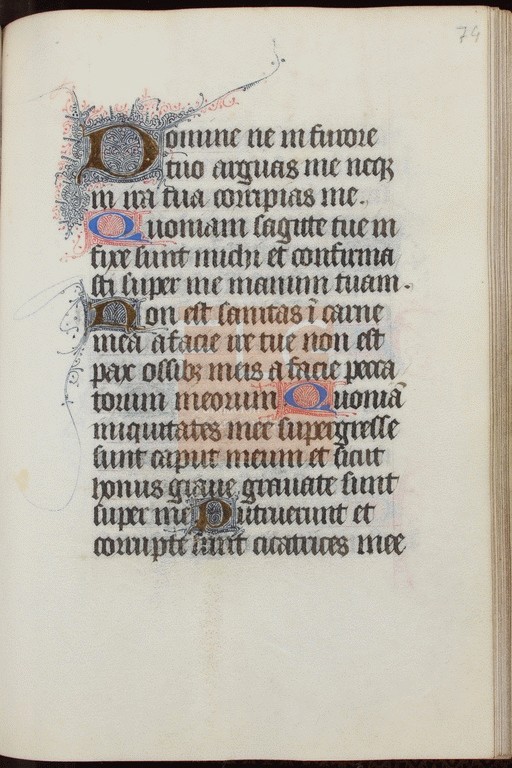 74
Domine ne in furore
tuo arguas me neqꝫ
in ira tua corripias me.
Quoniam sagitte tue in
fixe sunt michi et confirma
sti super me manum tuam.
Non est sanitas ī carne
mea a facie ire tue non est
pax ossibꝫ meis a facie pecca
torum meorum Quoniā
iniquitates mee supergresse
sunt caput meum et sicut
honus graue grauate sunt
super me Putruerunt et
corrupte sunt cicatrices mee